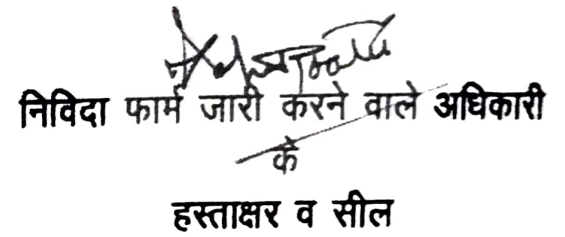 निविदा फार्म जारी करने वाले अधिकारी
के
हस्ताक्षर व सील